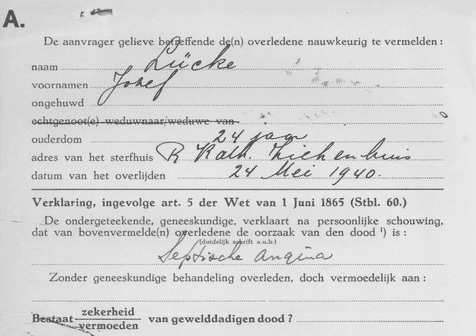 A.
De aanvrager gelieve betreffende de(n) overledene nauwkeurig te vermelden:
naam Lücke
voornamen Jozef
ongehuwd
echtgenoot(e) weduwnaar/weduwe van
ouderdom 24 jaar
adres van het sterfhuis R Kath. Ziekenhuis
datum van het overlijden 24 Mei 1940.
Verklaring, ingevolge art. 5 der Wet van 1 Juni 1865 (Stbl. 60.)
De ondergeteekende, geneeskundige, verklaart na persoonlijke schouwing,
dat van bovenvermelde(n) overledene de oorzaak van den dood ¹) is :
(duidelijk schrift a.u.b.)
Septische angina
Zonder geneeskundige behandeling overleden, doch vermoedelijk aan :
Bestaat zekerheid
vermoeden van gewelddadigen dood ?